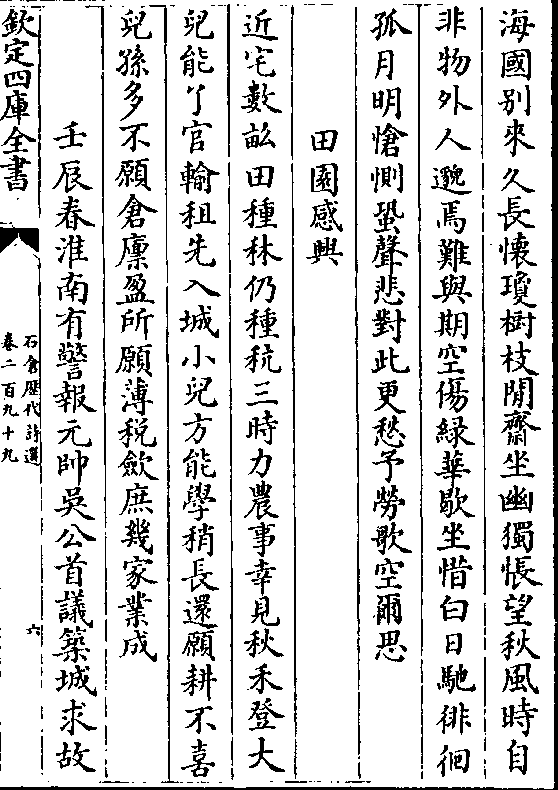 海國别來久長懐瓊樹枝閒齋坐幽獨悵望秋風時自
非物外人邈焉難與期空傷緑華歇坐惜白日馳徘徊
孤月明愴惻蛩聲悲對此更愁予勞歌空爾思
田園感興
近宅數畝田種秫仍種秔三時力農事幸見秋禾登大
兒能了官輸租先入城小兒方能學稍長還願耕不喜
兒孫多不願倉廪盈所願薄税斂庶幾家業成
壬辰春淮南有警報元帥吳公首議築城求故
欽定四庫全書
石倉歴代詩選
卷二百九十九
六